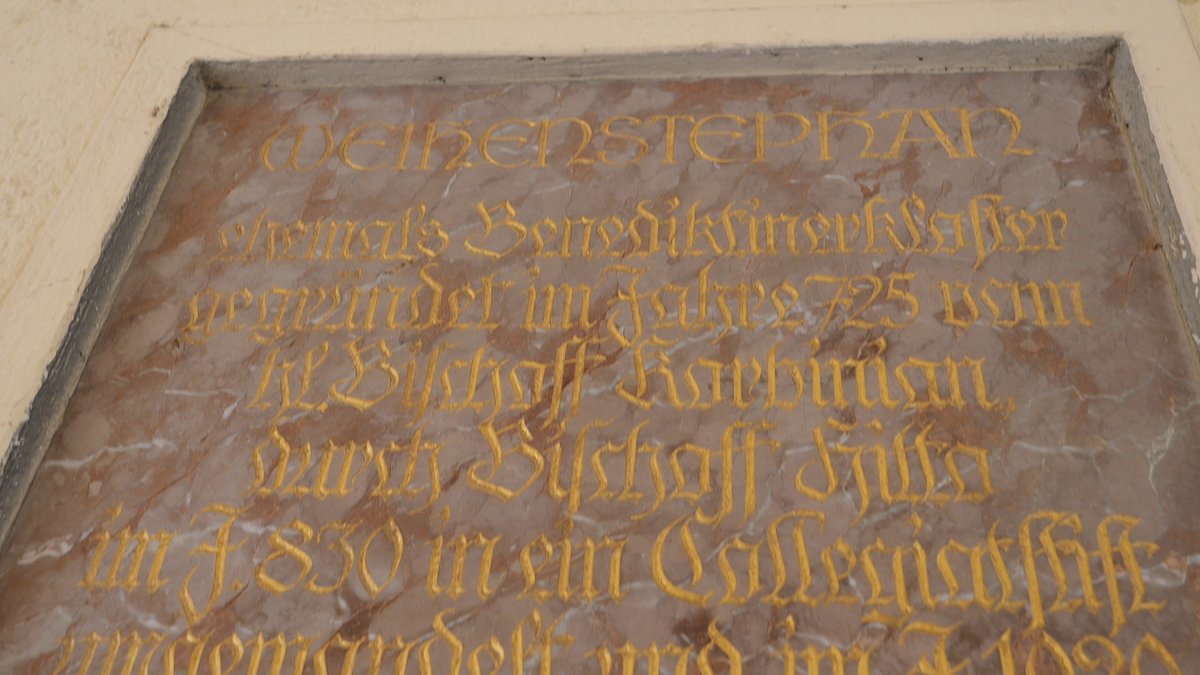 WEIHENSTEPHAN
ehemals Benediktinerkloster
gegründet im Jahre 725 vom
hl. Bischoff Korbinian,
durch Bischoff Hitto
im J. 830 in ein Collegiatstift
umgewandelt und im J. 1020